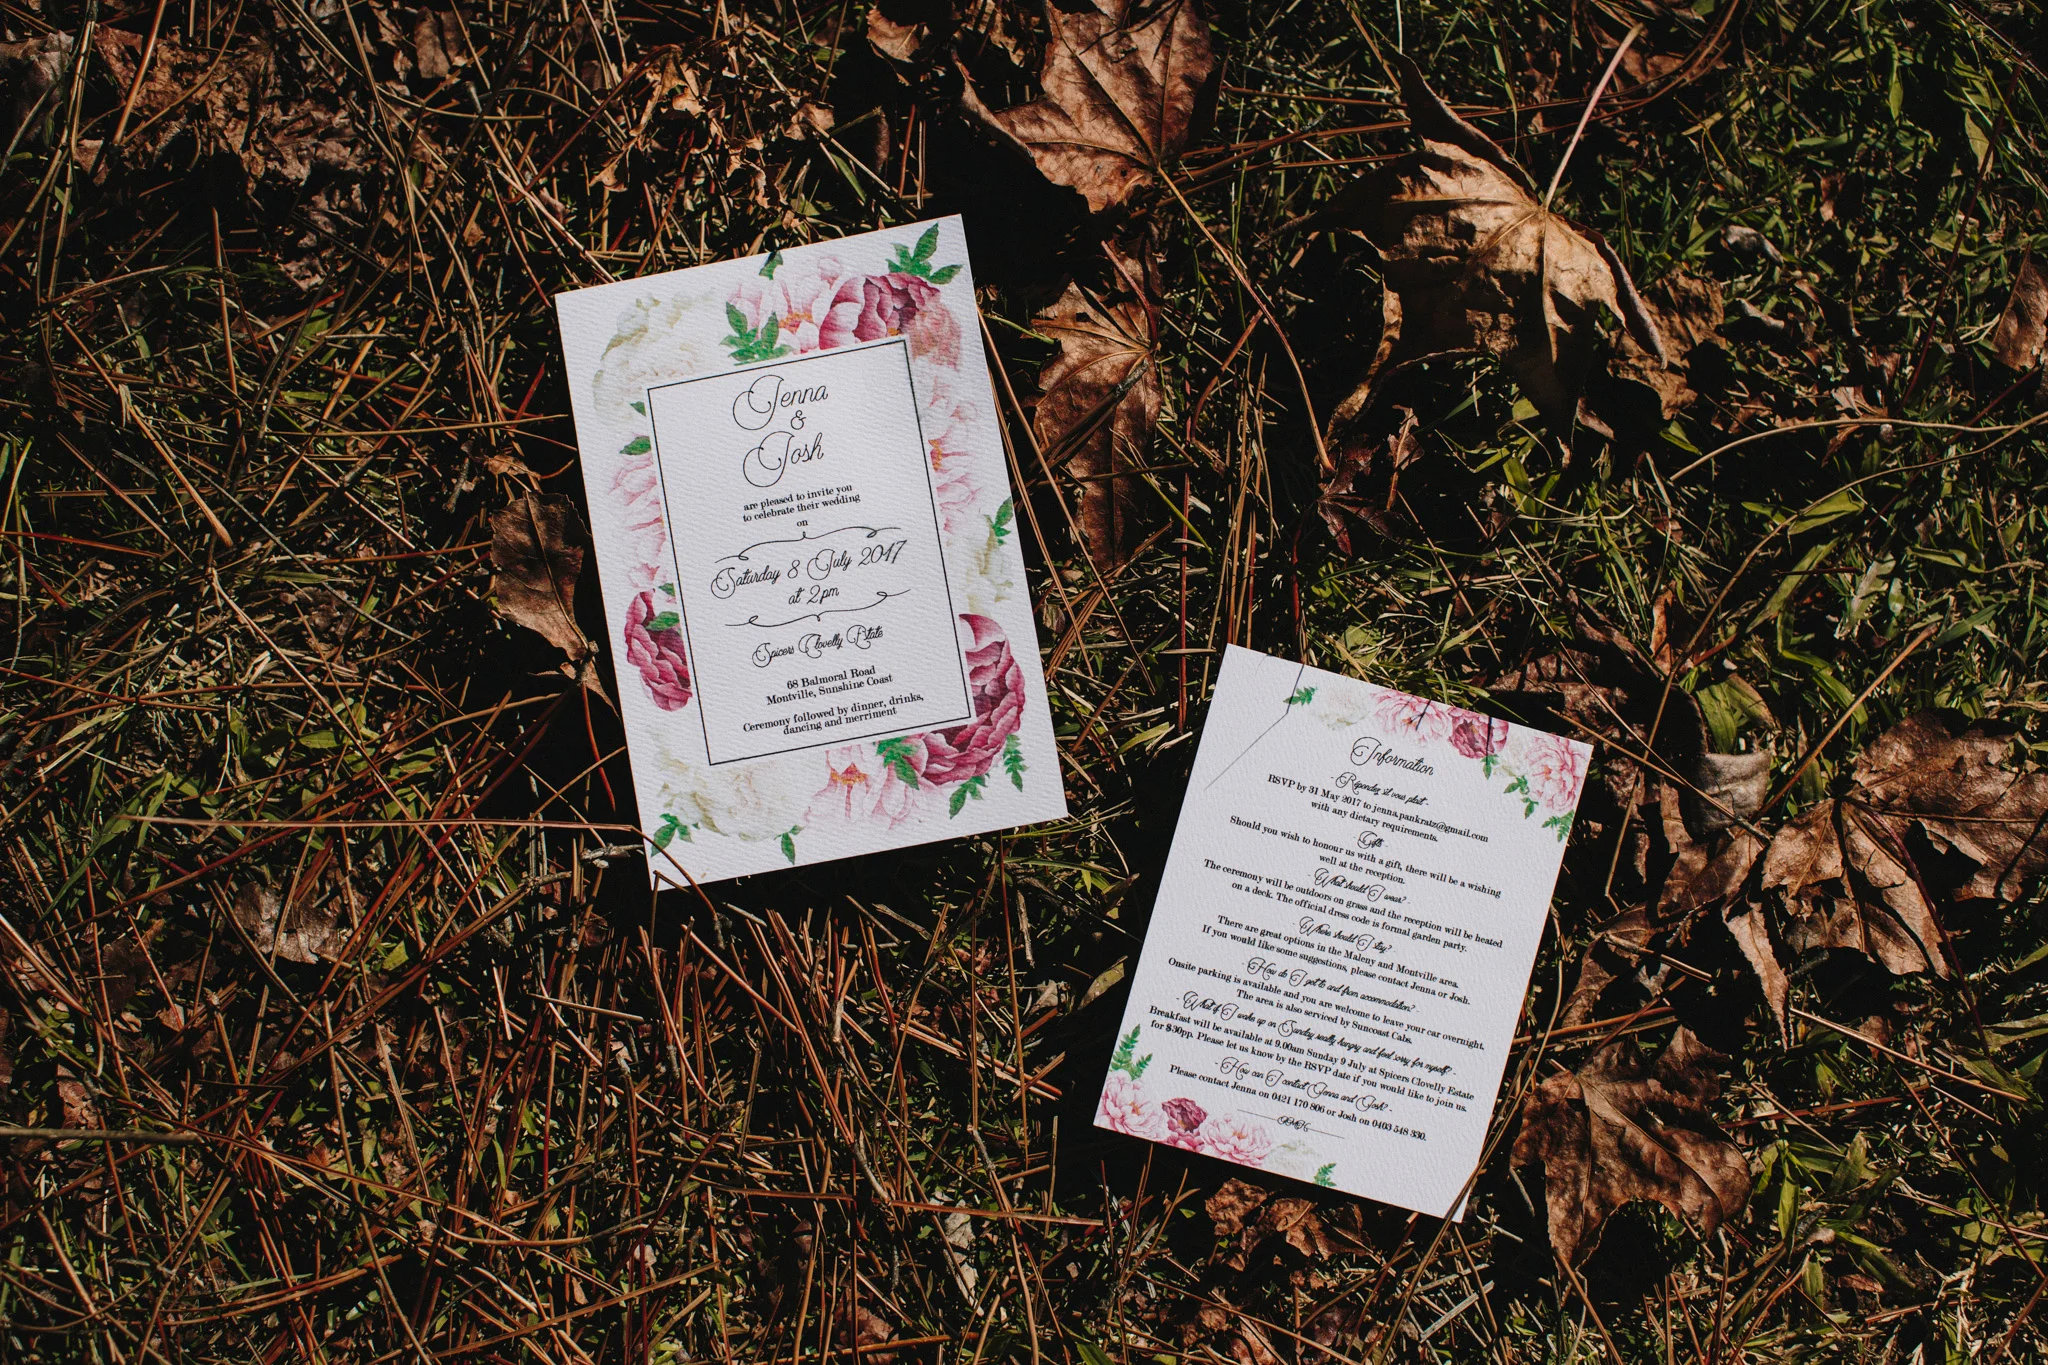 Jenna
&
Josh
are pleased to invite you
to celebrate their wedding
on
Saturday 8 July 2017
at 2pm
Spicers Clovelly Estate
68 Balmoral Road
Montville, Sunshine Coast
Ceremony followed by dinner, drinks,
dancing and merriment
Information
- Répondez s'il vous plaît -
RSVP by 31 May 2017 to jenna.pankratz@gmail.com
with any dietary requirements.
- Gifts -
Should you wish to honour us with a gift, there will be a wishing
well at the reception.
- What should I wear? -
The ceremony will be outdoors on grass and the reception will be heated
on a deck. The official dress code is formal garden party.
- Where should I stay?
There are great options in the Maleny and Montville area.
If you would like some suggestions, please contact Jenna or Josh.
- How do I get to and from accommodation? -
Onsite parking is available and you are welcome to leave your car overnight.
The area is also serviced by Suncoast Cabs.
- What if I wake up on Sunday really hungry and feel sorry for myself? -
Breakfast will be available at 9.00am Sunday 9 July at Spicers Clovelly Estate
for $30pp. Please let us know by the RSVP date if you would like to join us.
- How can I contact Jenna and Josh? -
Please contact Jenna on 0421 170 806 or Josh on 0403 548 330.